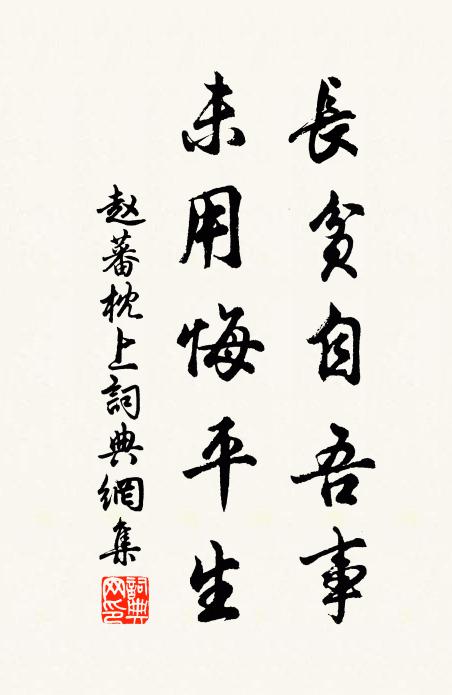 長貧自吾事
未用悔平生
赵蕃枕上詞典網集
詞典网印